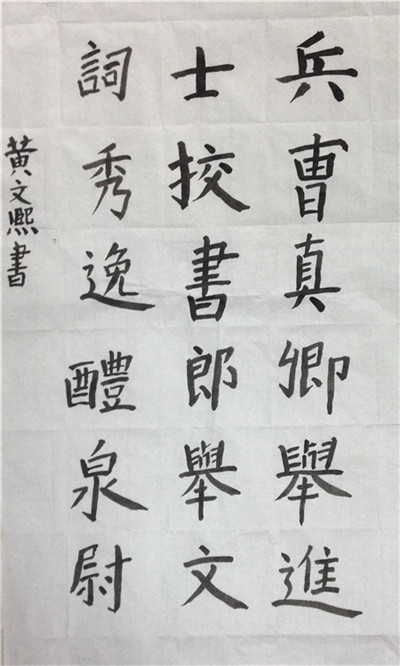 兵曺真卿舉進
士挍書郎舉文
詞秀逸醴泉尉
黄文熙書